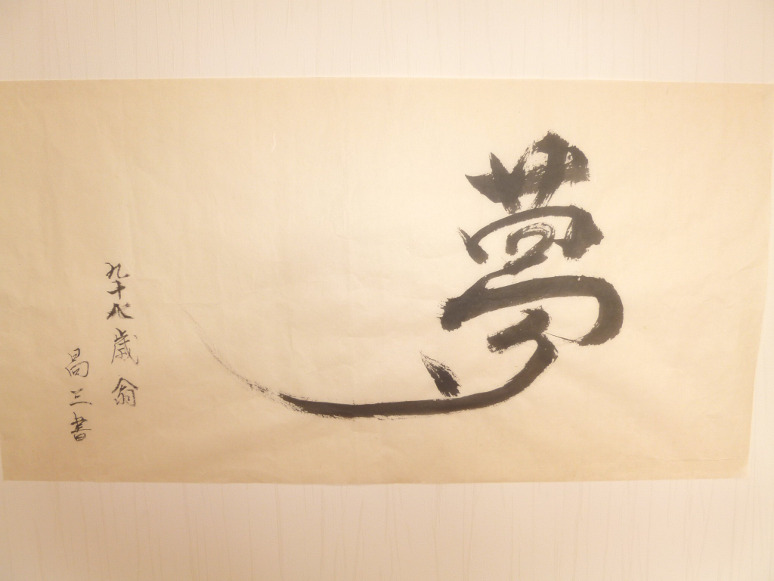 夢
九十八歳翁
昌三書